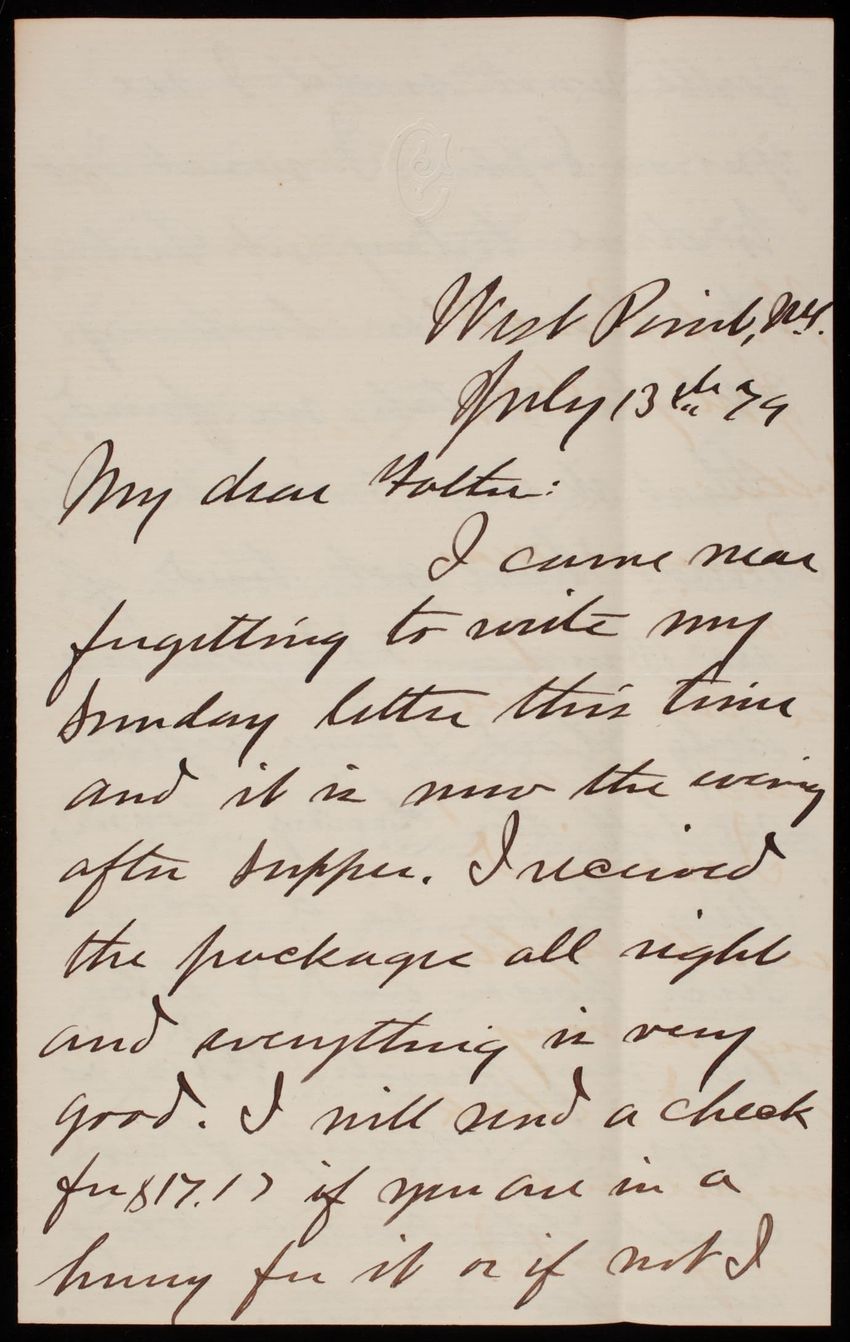 West Point, N.Y.
July 13th 79
My dear Father:
I came near
forgetting to write my
Sunday letter this time
and it is now the evening
after supper. I received
the package all right
and everything is very
good. I will send a check
for $17.17 if you are in a
hurry for it or if not I